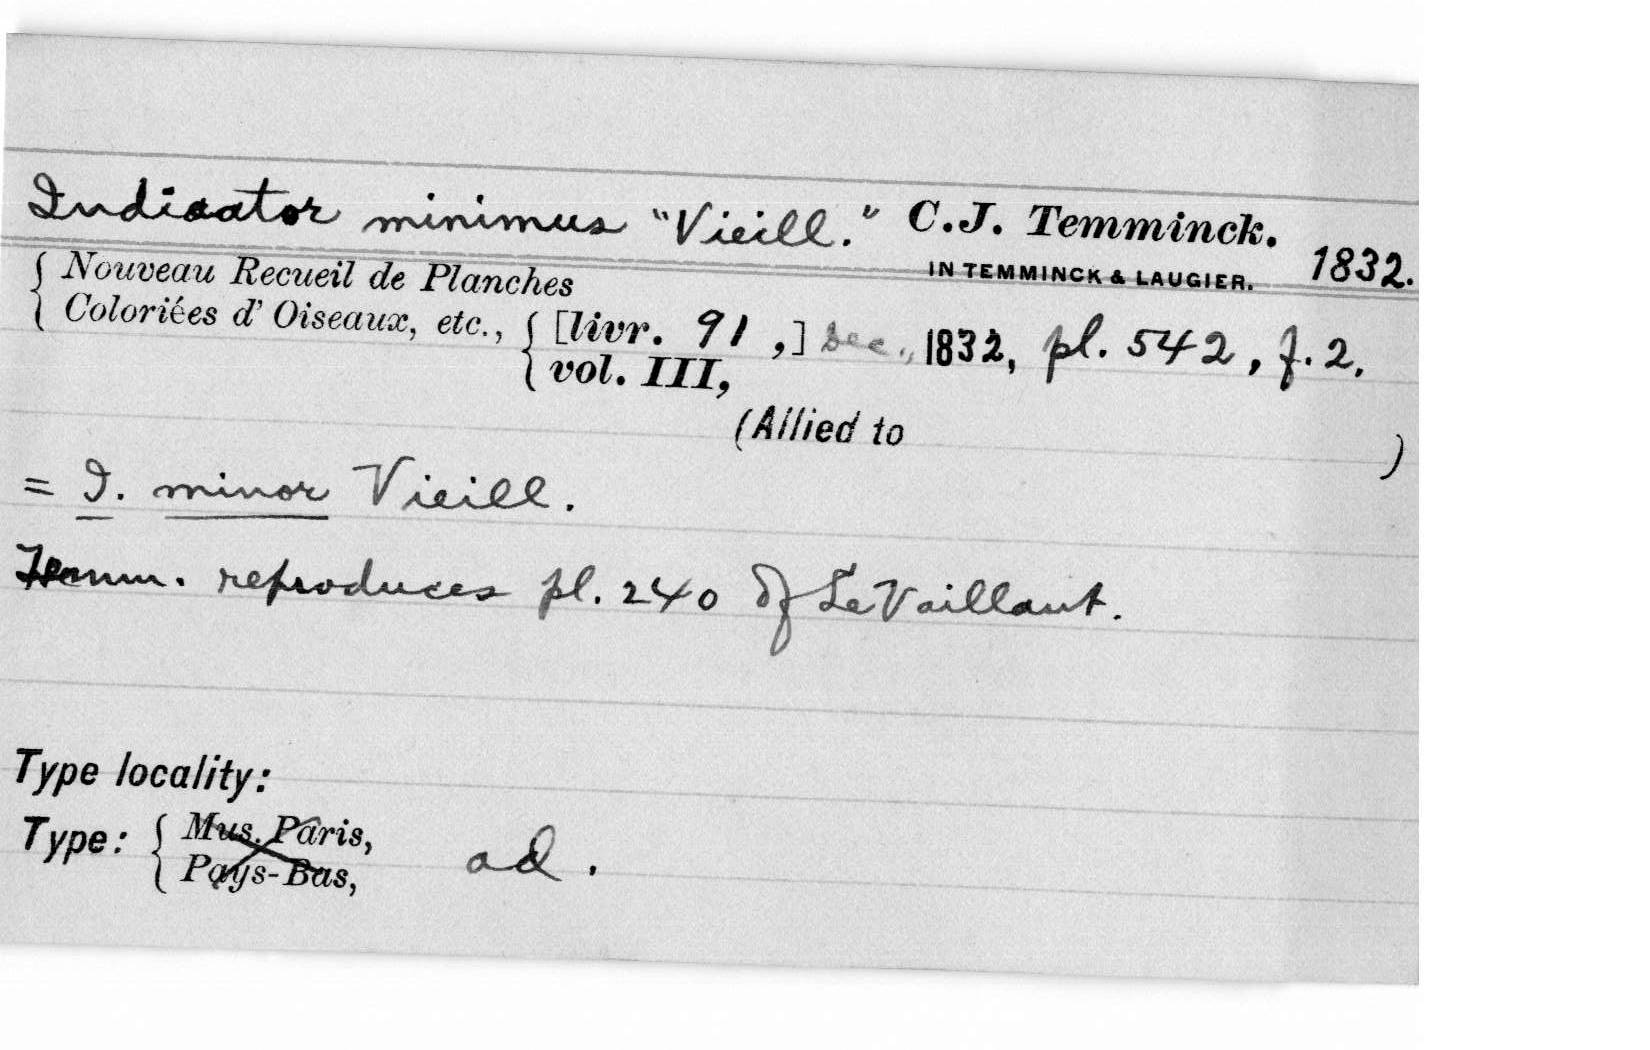 Indicator minimus "Vieill." C.J. Temminck.
IN TEMMINCK & LAUGIER. 1832.
Nouveau Recueil de Planches
Coloriées d' Oiseaux, etc., [livr. 91 ,] Dec., 1832, pl. 542, f. 2.
vol. III,
(Allied to )
= I. minor Vieill.
Temm. reproduces pl. 240 of LeVaillant.
Type locality:
Type: Mus. Paris, ad.
Pays-Bas,